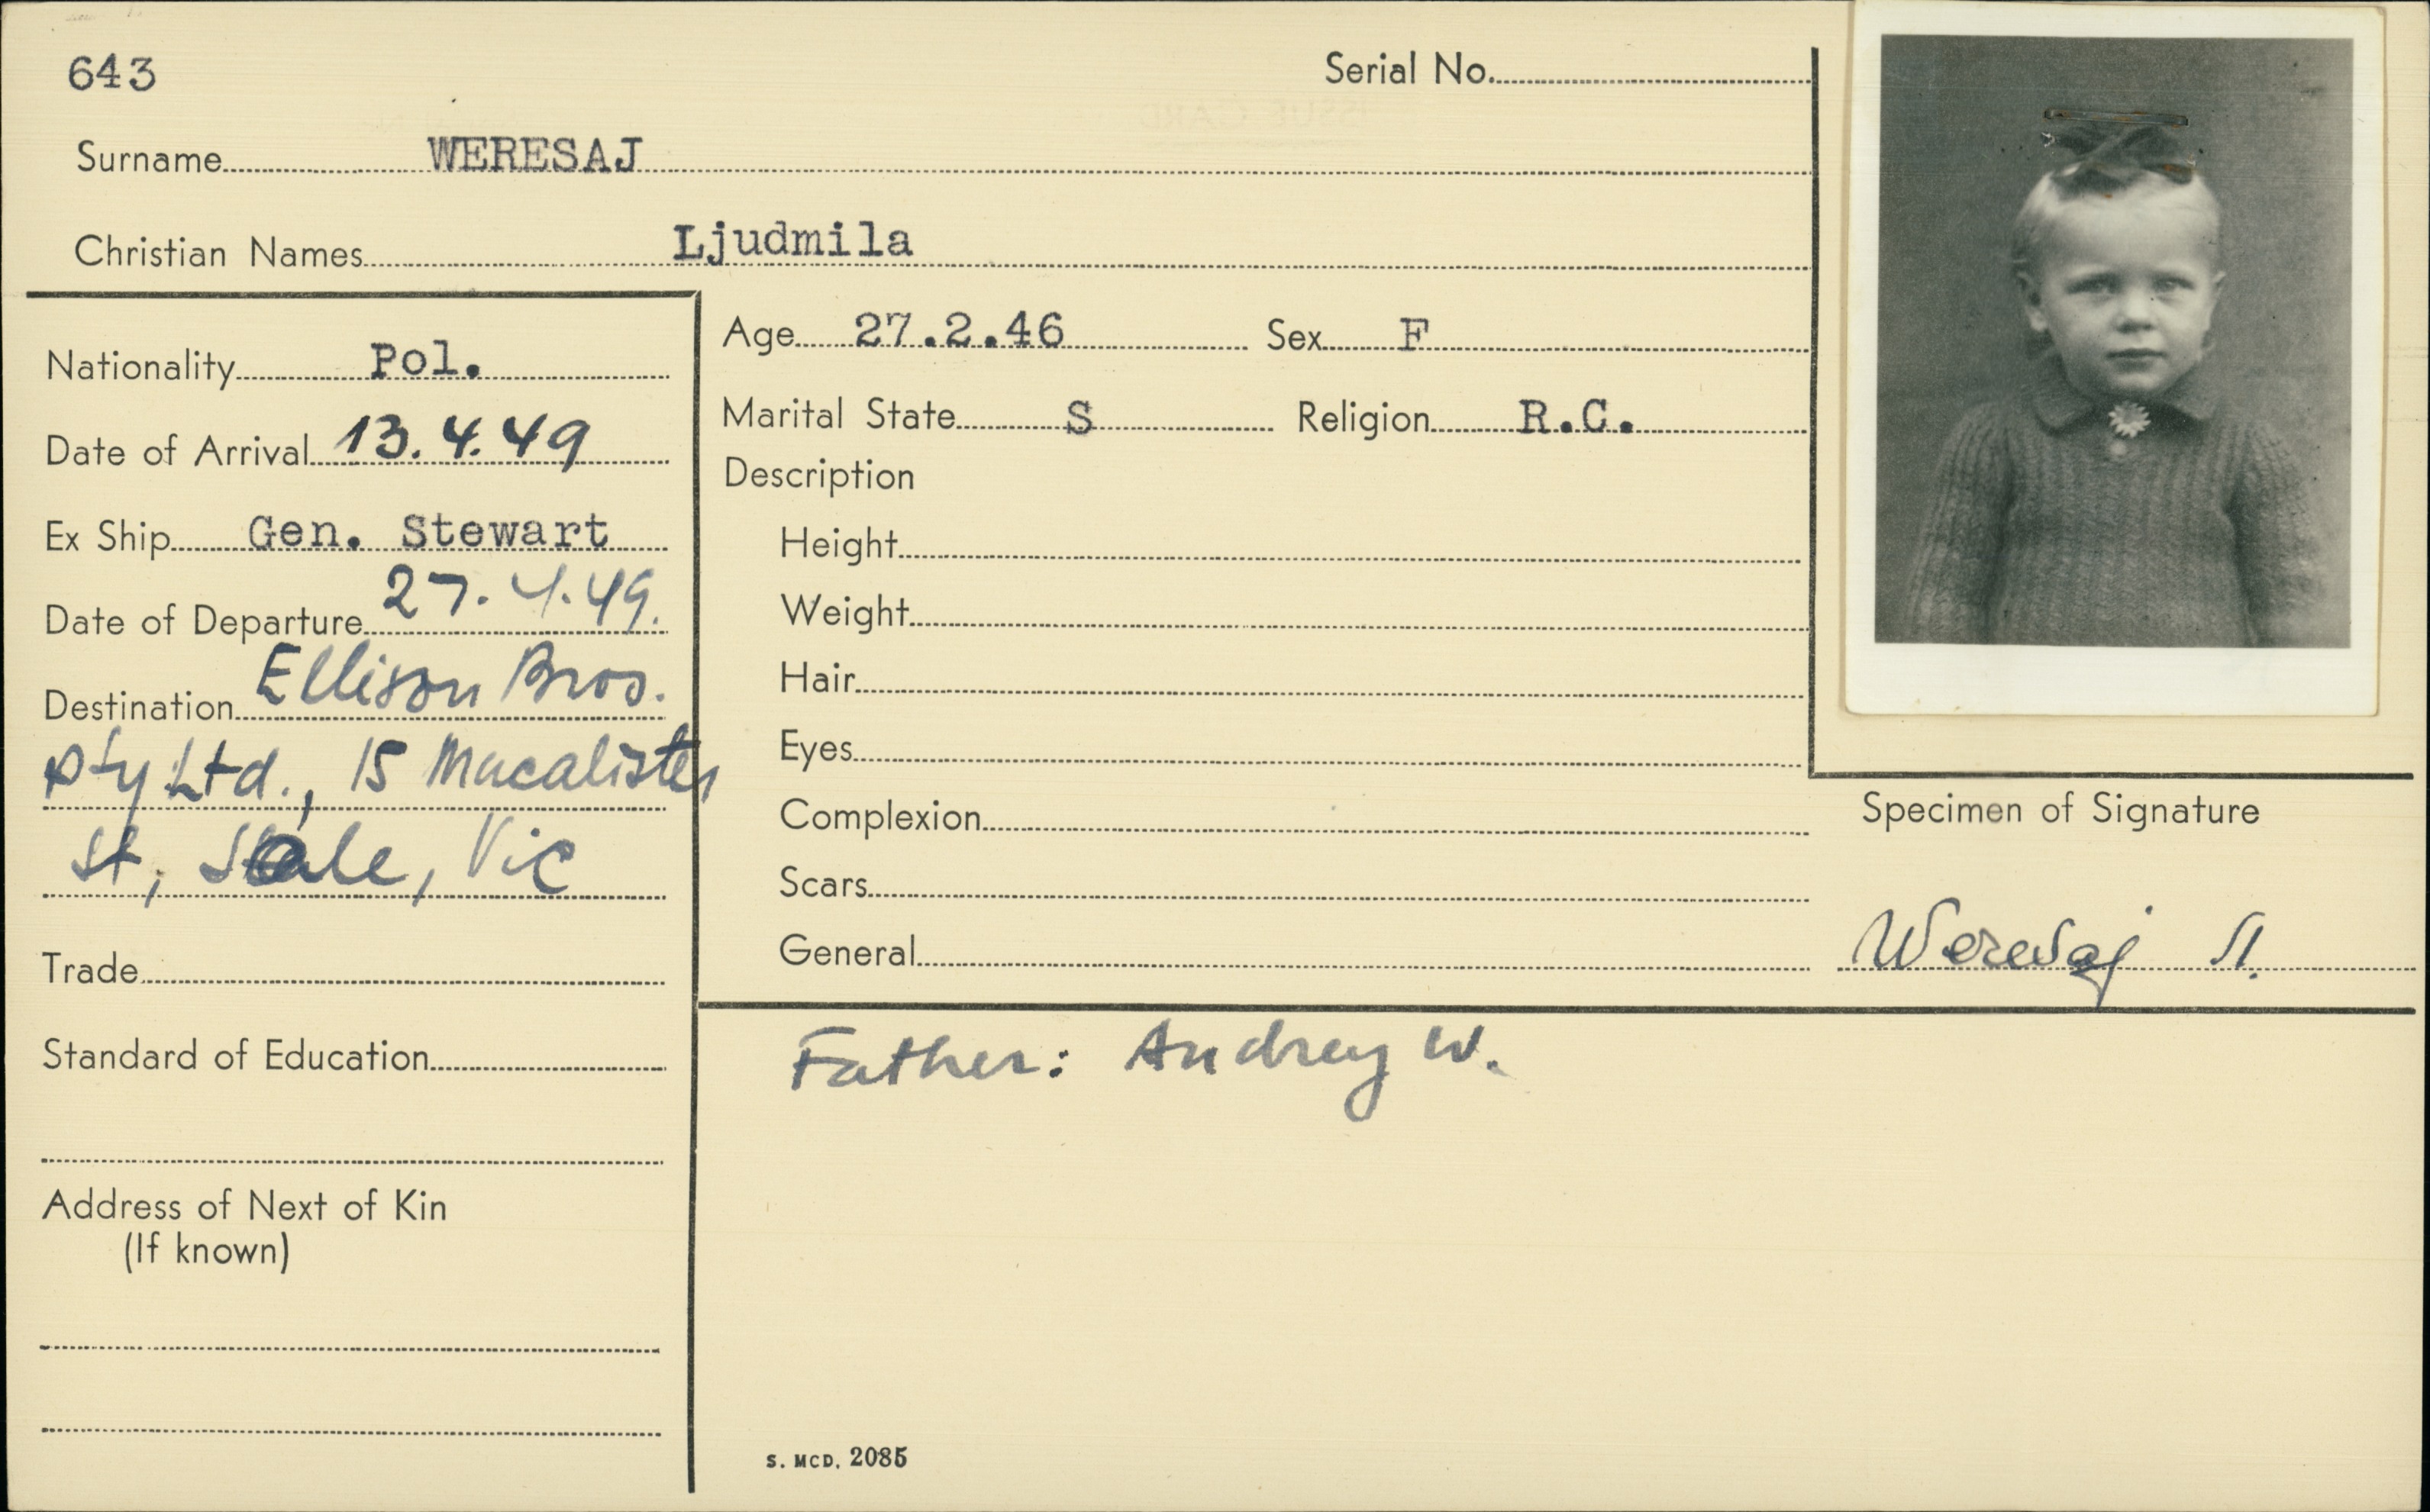 643
Serial No.
Surname WERESAJ
Christian Names Ljudmila
Nationality Pol.
Date of Arrival 13.4.49
Ex Ship Gen. Stewart
Date of Departure 27.4.49.
Destination Ellison Bros.
Pty Ltd., 15 Macalister
St, Sale, Vic
Trade
Standard of Education
Address of Next of Kin
(If known)
Age 27.2.46 Sex F
Marital State S Religion R.C.
Description
Height
Weight
Hair
Eyes
Complexion
Scars
General
Specimen of Signature
Weresaj Л.
Father: Andrey W.
S. MCD. 2085